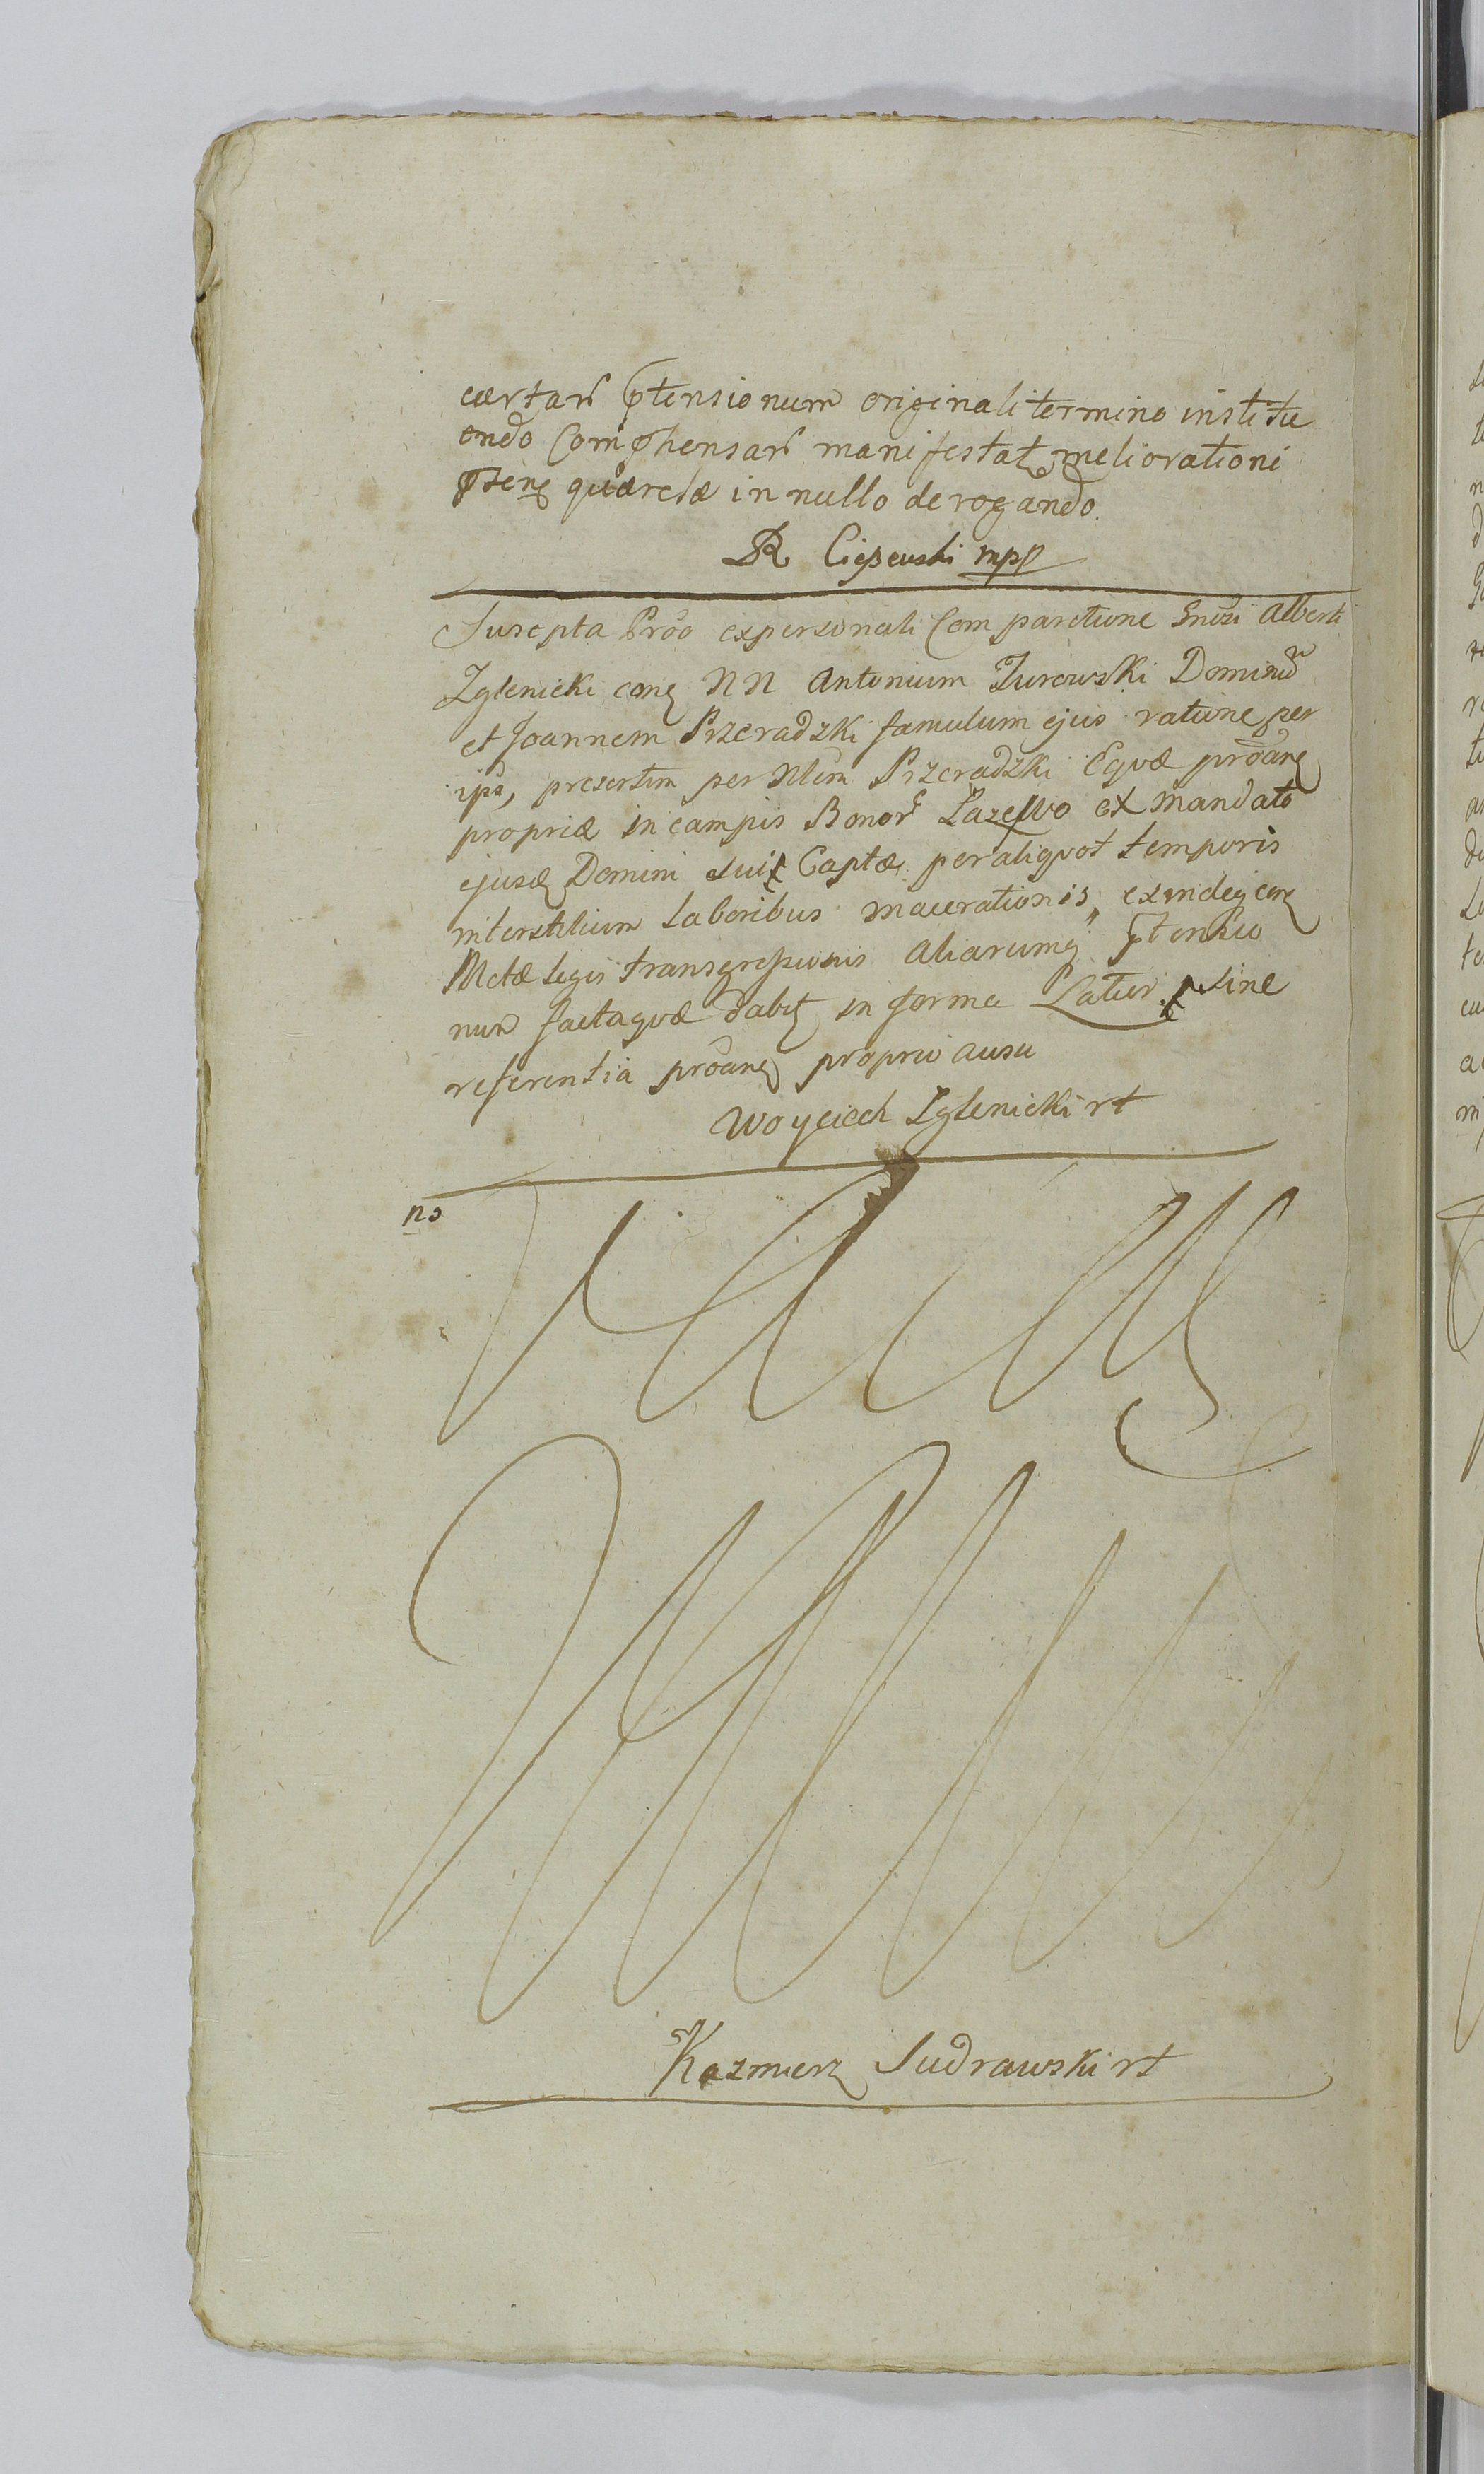 certar ptensionum originali termino institu
endo Comphensar manifestat meliorationi
pseng quærelæ in nullo derogando.
R Cieszewski mpp
Suscepta Prõo expersonali Comparitione Gnosi Alberti
Zglenicki cong NN Antonium Jurowski Dominũ
et Joannem Przeradzki famulum ejus ratione per
ips, presertim per Nlem Przeradzki Equæ prõang
propriæ in campis Bonor Łazewo ex mandato
ejusq Domini sui Captæ per aliquot temporis
interstitium laboribus macerationis, exindeq cong
Metæ legis transgressionis aliarumq ptensio
num factaquæ dabit in forma Latior. sine
referentia prõang proprio ausu
Woyciech Zglenicki rt
no
Kazmierz Sudrawski rt